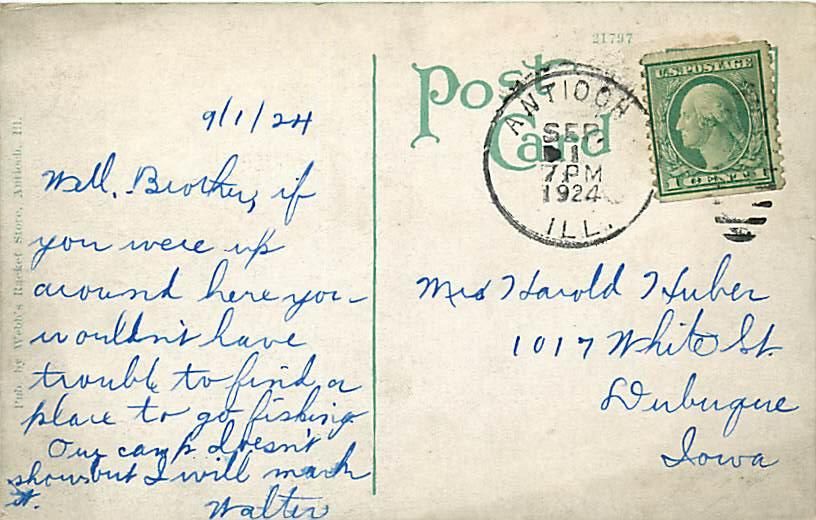 21797
Post
Card
ANTIOCH
SEP
1
7 PM
1924
ILL.
U.S. POSTAGE
1 CENT 1
9/1/24
Well, Brother, if
you were up
around here you
wouldn't have
trouble to find a
place to go fishing.
Our camp doesn't
show but I will mark
it.
Walter
Mrs Harold Huber
1017 White St.
Dubuque
Iowa
Pub. by Webb's Racket Store, Antioch, Ill.